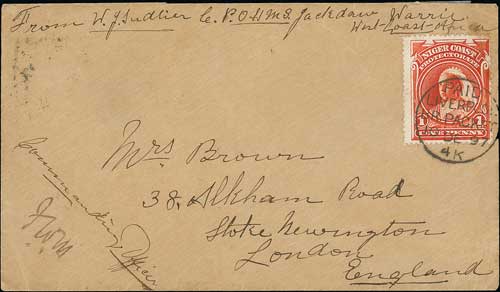 From W. J. Sudlier C. P. O. H.M.S. Jackdaw, Warri
West Coast Africa
NIGER COAST
PROTECTORATE
1 1
ONE PENNY
PAID
LIVERP
BR. PACK
97
4K
Mrs Brown
38, Alkham Road
Stoke Newington
London
England
Commanding Officer